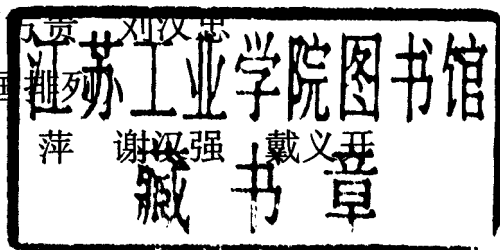 贵 刘汉忠
江苏工业学院图书馆
排列
萍 谢汉强 戴义开
藏书章